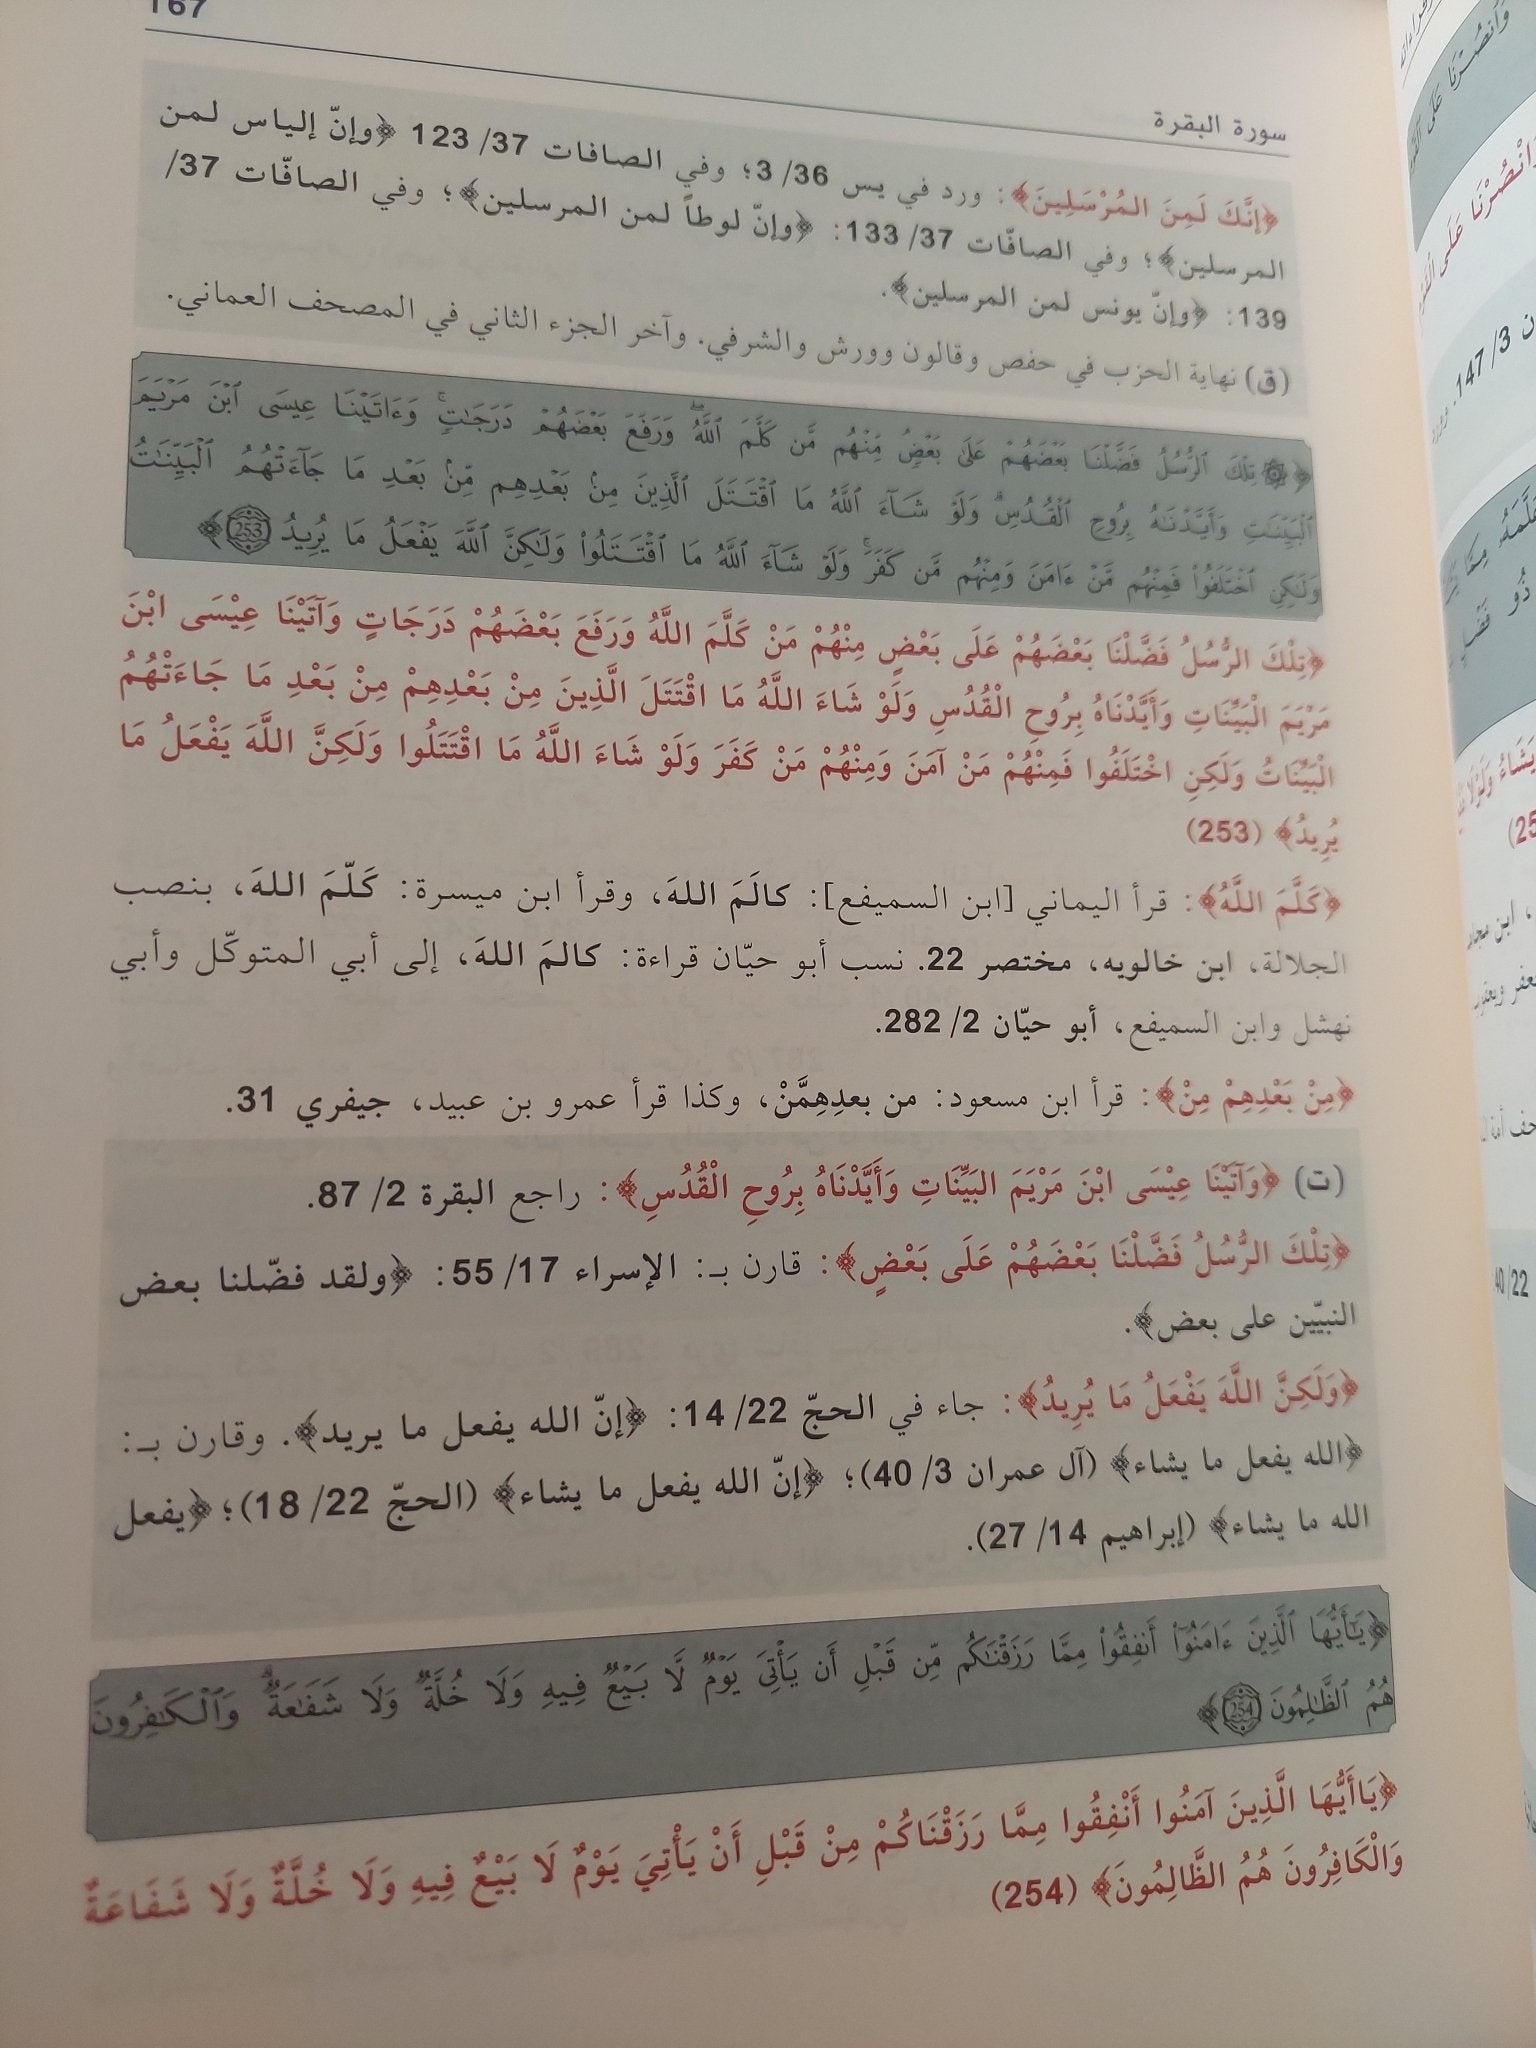 167
سورة البقرة
﴿إِنَّكَ لَمِنَ المُرْسَلِينَ﴾: ورد في يس 36/ 3؛ وفي الصافات 37/ 123 ﴿وإنّ إلياس لمن
المرسلين﴾؛ وفي الصافّات 37/ 133: ﴿وإنّ لوطاً لمن المرسلين﴾؛ وفي الصافّات 37/
139: ﴿وإنّ يونس لمن المرسلين﴾.
(ق) نهاية الحزب في حفص وقالون وورش والشرفي. وآخر الجزء الثاني في المصحف العماني.
﴿۞ تِلْكَ ٱلرُّسُلُ فَضَّلْنَا بَعْضَهُمْ عَلَىٰ بَعْضٍۘ مِّنْهُم مَّن كَلَّمَ ٱللَّهُۖ وَرَفَعَ بَعْضَهُمْ دَرَجَٰتٍۚ وَءَاتَيْنَا عِيسَى ٱبْنَ مَرْيَمَ
ٱلْبَيِّنَٰتِ وَأَيَّدْنَٰهُ بِرُوحِ ٱلْقُدُسِۗ وَلَوْ شَآءَ ٱللَّهُ مَا ٱقْتَتَلَ ٱلَّذِينَ مِنۢ بَعْدِهِم مِّنۢ بَعْدِ مَا جَآءَتْهُمُ ٱلْبَيِّنَٰتُ
وَلَٰكِنِ ٱخْتَلَفُوا۟ فَمِنْهُم مَّنْ ءَامَنَ وَمِنْهُم مَّن كَفَرَۚ وَلَوْ شَآءَ ٱللَّهُ مَا ٱقْتَتَلُوا۟ وَلَٰكِنَّ ٱللَّهَ يَفْعَلُ مَا يُرِيدُ 253﴾
﴿تِلْكَ الرُّسُلُ فَضَّلْنَا بَعْضَهُمْ عَلَى بَعْضٍ مِنْهُمْ مَنْ كَلَّمَ اللَّهُ وَرَفَعَ بَعْضَهُمْ دَرَجَاتٍ وَآتَيْنَا عِيْسَى ابْنَ
مَرْيَمَ الْبَيِّنَاتِ وَأَيَّدْنَاهُ بِرُوحِ الْقُدُسِ وَلَوْ شَاءَ اللَّهُ مَا اقْتَتَلَ الَّذِينَ مِنْ بَعْدِهِمْ مِنْ بَعْدِ مَا جَاءَتْهُمُ
الْبَيِّنَاتُ وَلَكِنِ اخْتَلَفُوا فَمِنْهُمْ مَنْ آمَنَ وَمِنْهُمْ مَنْ كَفَرَ وَلَوْ شَاءَ اللَّهُ مَا اقْتَتَلُوا وَلَكِنَّ اللَّهَ يَفْعَلُ مَا
يُرِيدُ﴾ (253)
﴿كَلَّمَ اللَّهُ﴾: قرأ اليماني [ابن السميفع]: كالَمَ اللهَ، وقرأ ابن ميسرة: كَلّمَ اللهَ، بنصب
الجلالة، ابن خالويه، مختصر 22. نسب أبو حيّان قراءة: كالمَ اللهَ، إلى أبي المتوكّل وأبي
نهشل وابن السميفع، أبو حيّان 2/ 282.
﴿مِنْ بَعْدِهِمْ مِنْ﴾: قرأ ابن مسعود: من بعدِهِمَّنْ، وكذا قرأ عمرو بن عبيد، جيفري 31.
(ت) ﴿وَآتَيْنَا عِيْسَى ابْنَ مَرْيَمَ البَيِّنَاتِ وَأَيَّدْنَاهُ بِرُوحِ الْقُدُسِ﴾: راجع البقرة 2/ 87.
﴿تِلْكَ الرُّسُلُ فَضَّلْنَا بَعْضَهُمْ عَلَى بَعْضٍ﴾: قارن بـ: الإسراء 17/ 55: ﴿ولقد فضّلنا بعض
النبيّين على بعض﴾.
﴿وَلَكِنَّ اللَّهَ يَفْعَلُ مَا يُرِيدُ﴾: جاء في الحجّ 22/ 14: ﴿إنّ الله يفعل ما يريد﴾. وقارن بـ:
﴿الله يفعل ما يشاء﴾ (آل عمران 3/ 40)؛ ﴿إنّ الله يفعل ما يشاء﴾ (الحجّ 22/ 18)؛ ﴿يفعل
الله ما يشاء﴾ (إبراهيم 14/ 27).
﴿يَٰٓأَيُّهَا ٱلَّذِينَ ءَامَنُوٓا۟ أَنفِقُوا۟ مِمَّا رَزَقْنَٰكُم مِّن قَبْلِ أَن يَأْتِىَ يَوْمٌ لَّا بَيْعٌ فِيهِ وَلَا خُلَّةٌ وَلَا شَفَٰعَةٌۗ وَٱلْكَٰفِرُونَ
هُمُ ٱلظَّٰلِمُونَ 254﴾
﴿يَاأَيُّهَا الَّذِينَ آمَنُوا أَنْفِقُوا مِمَّا رَزَقْنَاكُمْ مِنْ قَبْلِ أَنْ يَأْتِيَ يَوْمٌ لَا بَيْعٌ فِيهِ وَلَا خُلَّةٌ وَلَا شَفَاعَةٌ
وَالْكَافِرُونَ هُمُ الظَّالِمُونَ﴾ (254)